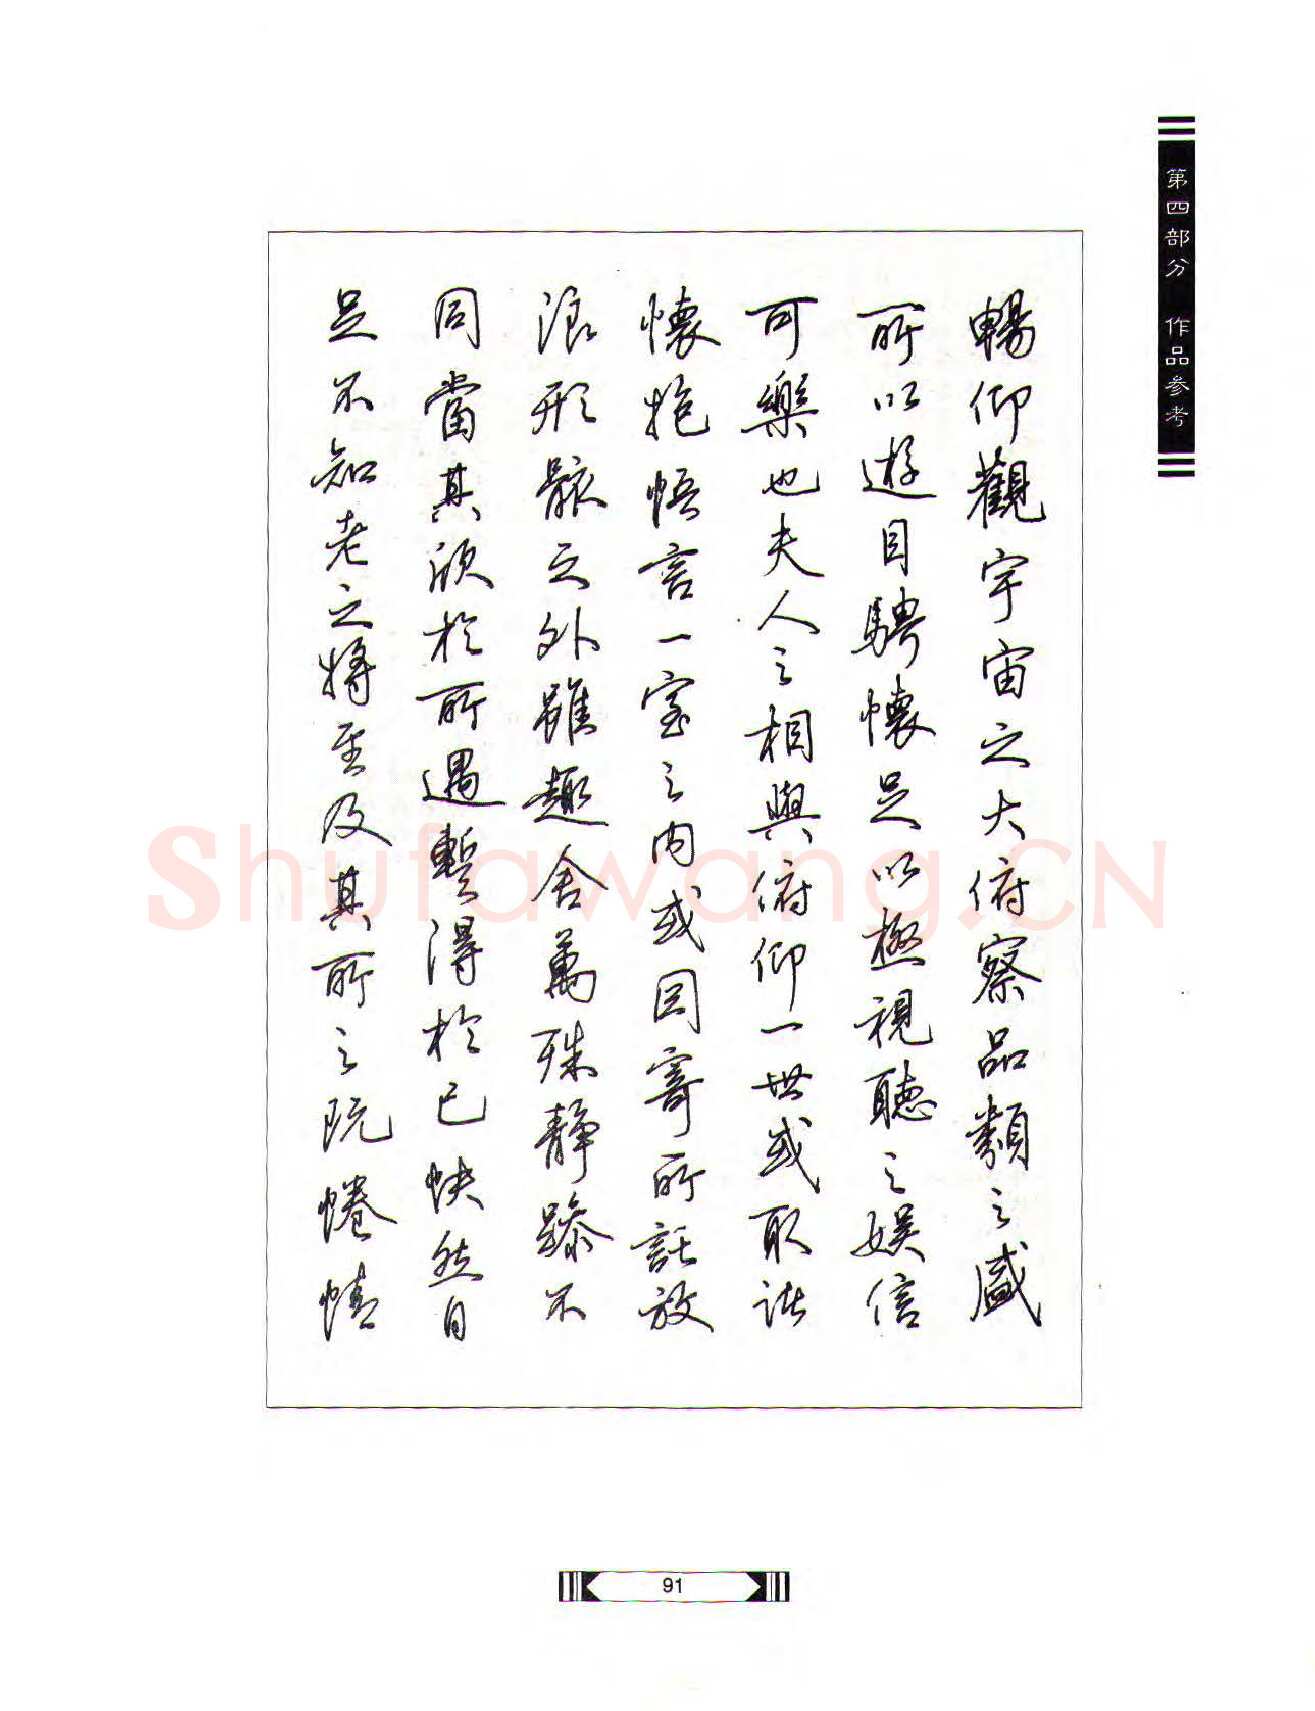 第四部分 作品参考
暢仰觀宇宙之大俯察品類之盛
所以遊目騁懷足以極視聽之娱信
可樂也夫人之相與俯仰一世或取諸
懷抱悟言一室之内或因寄所託放
浪形骸之外雖趣舍萬殊静躁不
同當其欣於所遇暫得於己快然自
足不知老之將至及其所之既惓情
Shufawang.CN
91